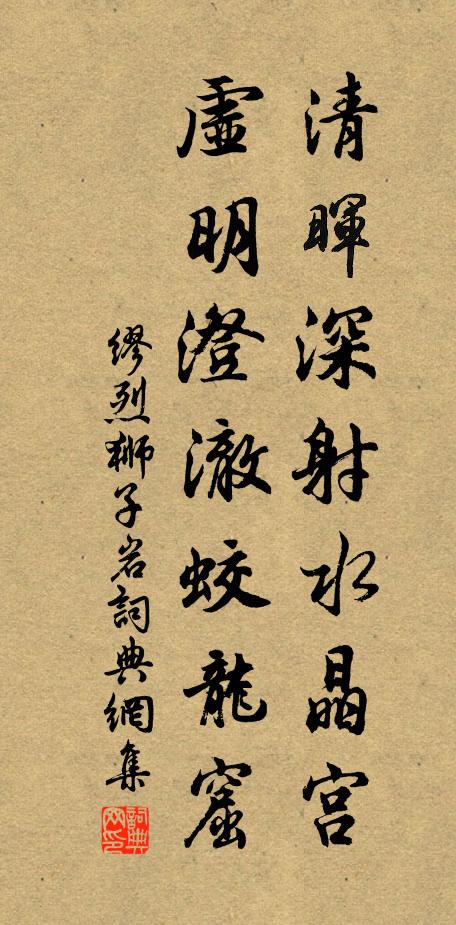 清暉深射水晶宮
虛明澄澈蛟龍窟
繆烈獅子岩詞典網集
詞典网印